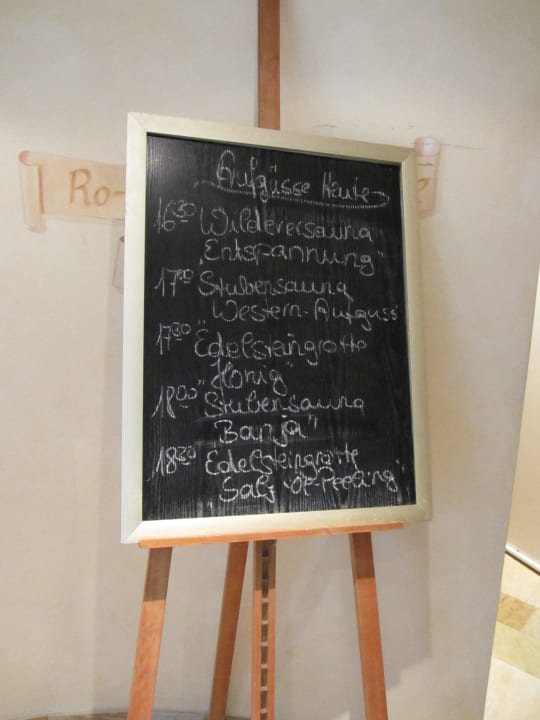 Aufgüsse Heute
16³⁰ Wildeversauna
„Entspannung"
17⁰⁰ Stubensauna
Western-Aufguss
17³⁰ Edelsteingrotte
„Honig"
18⁰⁰ Stubensauna
„Banja"
18³⁰ Edelsteingrotte
„Salz-Öl-Peeling"
Ro-